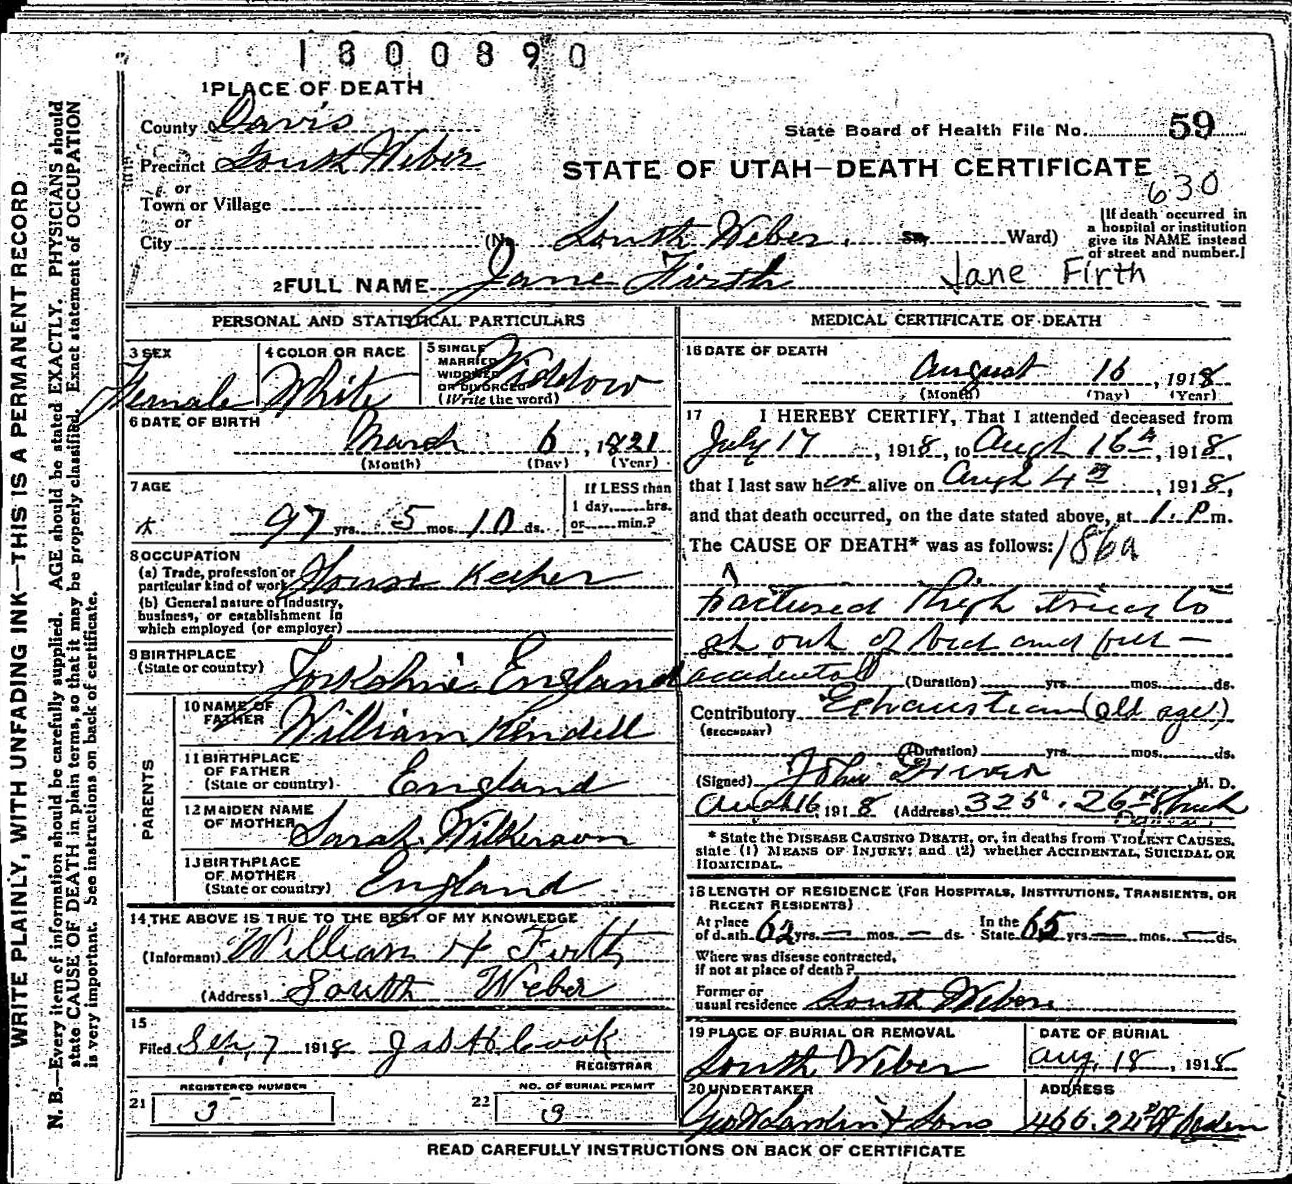 1300890
1 PLACE OF DEATH
County Davis
Precinct South Weber
or
Town or Village
or
City
State Board of Health File No. 59
STATE OF UTAH—DEATH CERTIFICATE
630
(No. South Weber. St. Ward)
[If death occurred in
a hospital or institution
give its NAME instead
of street and number.]
2 FULL NAME Jane Firth Jane Firth
PERSONAL AND STATISTICAL PARTICULARS
3 SEX
Female
4 COLOR OR RACE
White
5 SINGLE
MARRIED
WIDOWED
OR DIVORCED
(Write the word)
Widdow
6 DATE OF BIRTH
March 6, 1821
(Month) (Day) (Year)
7 AGE
97 yrs. 5 mos. 10 ds.
If LESS than
1 day, hrs.
or min.?
8 OCCUPATION
(a) Trade, profession or
particular kind of work House Keeper
(b) General nature of Industry,
business, or establishment in
which employed (or employer)
9 BIRTHPLACE
(State or country) Yorkshire England
PARENTS
10 NAME OF
FATHER William Kendell
11 BIRTHPLACE
OF FATHER
(State or country) England
12 MAIDEN NAME
OF MOTHER Sarah Wilkerson
13 BIRTHPLACE
OF MOTHER
(State or country) England
14 THE ABOVE IS TRUE TO THE BEST OF MY KNOWLEDGE
(Informant) William H Firth
(Address) South Weber
15
Filed Sep, 7 1918 Jas H Cook
REGISTRAR
REGISTERED NUMBER
21 3
NO. OF BURIAL PERMIT
22 3
MEDICAL CERTIFICATE OF DEATH
16 DATE OF DEATH
August 16, 1918
(Month) (Day) (Year)
17 I HEREBY CERTIFY, That I attended deceased from
July 17, 1918, to Augh 16th, 1918,
that I last saw her alive on Augh 4th, 1918,
and that death occurred, on the date stated above, at 1. P m.
The CAUSE OF DEATH* was as follows: 186a
Fractured Thigh tried to
get out of bed and fell —
accidental (Duration) yrs. mos. ds.
Contributory Exhaustian (old age)
(SECONDARY)
(Duration) yrs. mos. ds.
(Signed) John Driver M. D.
Augh 16, 1918 (Address) 325 . 26th
* State the DISEASE CAUSING DEATH, or, in deaths from VIOLENT CAUSES,
state (1) MEANS OF INJURY; and (2) whether ACCIDENTAL, SUICIDAL OR
HOMICIDAL.
18 LENGTH OF RESIDENCE (FOR HOSPITALS, INSTITUTIONS, TRANSIENTS, OR
RECENT RESIDENTS)
At place
of death 62 yrs. — mos. — ds.
In the
State 65 yrs. — mos. — ds.
Where was disease contracted,
if not at place of death?
Former or
usual residence South Weber
19 PLACE OF BURIAL OR REMOVAL
South Weber
DATE OF BURIAL
Aug. 18, 1918
20 UNDERTAKER
Geo W Larkin & Sons
ADDRESS
466. 24th St Ogden
READ CAREFULLY INSTRUCTIONS ON BACK OF CERTIFICATE
WRITE PLAINLY, WITH UNFADING INK—THIS IS A PERMANENT RECORD
N. B.—Every item of information should be carefully supplied. AGE should be stated EXACTLY. PHYSICIANS should
state CAUSE OF DEATH in plain terms, so that it may be properly classified. Exact statement of OCCUPATION
is very important. See instructions on back of certificate.